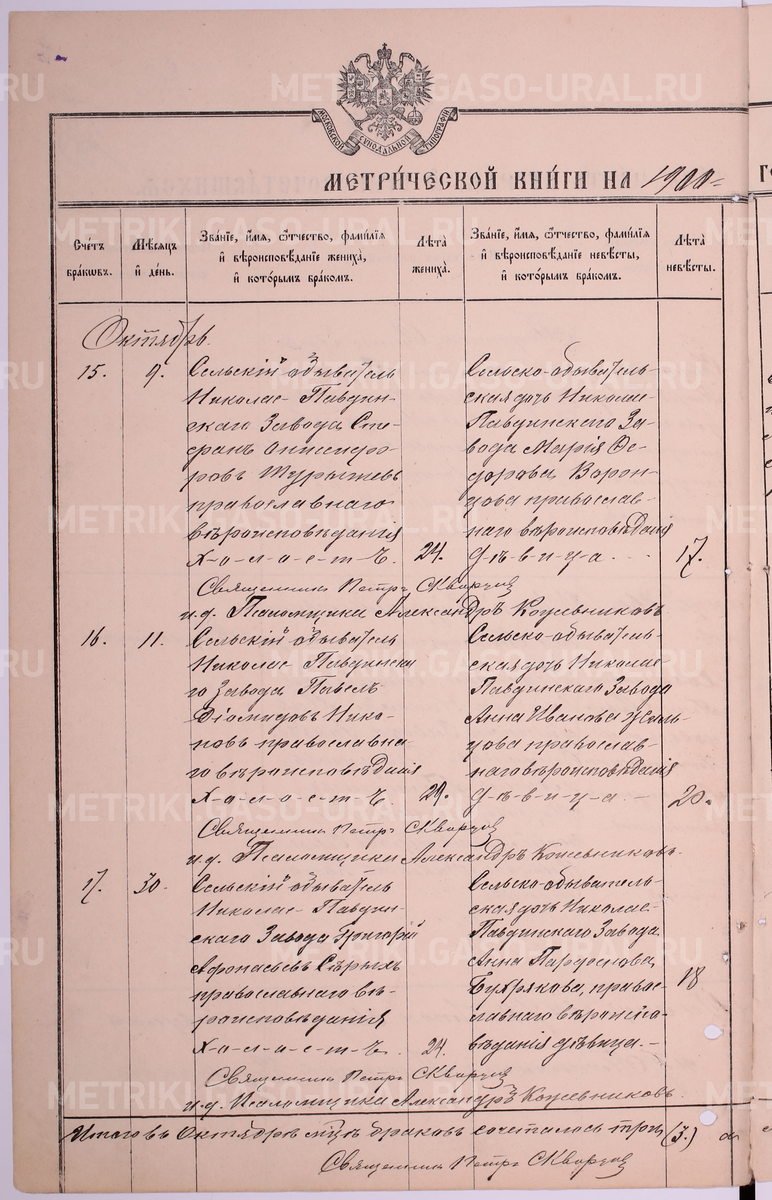 МОСКОВСКОЙ СѴНОДАЛЬНОЙ ТИПОГРАФІИ
МЕТРИ́ЧЕСКОЙ КНИ́ГИ НА 1900
Сче́тъ бра́кѡвъ.
Мѣ́сѧцъ и҆ де́нь.
Зва́нїе, и҆́мѧ, ѻ҆́тчество, фами́лїѧ
и҆ вѣроисповѣ́данїе жениха̀,
и҆ кото́рымъ бра́комъ.
Лѣ́та жениха̀.
Зва́нїе, и҆́мѧ, ѻ҆́тчество, фами́лїѧ
и҆ вѣроисповѣ́данїе невѣ́сты,
и҆ кото́рымъ бра́комъ.
Лѣ́та невѣ́сты.
Октябрь.
15. 9.
Сельскій обыватель
Николае-Павдин-
скаго Завода Сте-
фанъ
ровъ
православнаго
вѣроисповѣданія
Х-о-л-о-с-т-ъ. 24.
Сельско-обыватель-
ская дочь Николае-
Павдинскаго За-
вода Марія Ѳе-
дорова Ворон-
цова православ-
наго вѣроисповѣданія
д-ѣ-в-и-ц-а. 17.
Священникъ Петръ Скворцов
и.д. Псаломщика Александръ Кожевниковъ
16. 11.
Сельскій обыватель
Николае-Павдинска-
го Завода Павелъ
Діомидовъ Нико-
новъ православна-
го вѣроисповѣданія
Х-о-л-о-с-т-ъ. 29.
Сельско-обыватель-
ская дочь Николае-
Павдинскаго Завода
Анна Иванова
цова православ-
наго вѣроисповѣданія
д-ѣ-в-и-ц-а. 20.
Священникъ Петръ Скворцов
и.д. Псаломщика Александръ Кожевниковъ.
17. 30.
Сельскій обыватель
Николае-Павдин-
скаго Завода Григорій
Афонасьевъ Сѣрыхъ
православнаго вѣ-
роисповѣданія
Х-о-л-о-с-т-ъ. 24.
Сельско-обыватель-
ская дочь Николае-
Павдинскаго Завода
Анна
Бухрякова, право-
славнаго вѣроиспо-
вѣданія дѣвица. 18
Священникъ Петръ Скворцов
и.д. Псаломщика Александръ Кожевниковъ.
Итого въ Октябрѣ м-цѣ браковъ сочеталось три (3.)
Священникъ Петръ Скворцов
METRIKI.GASO-URAL.RU